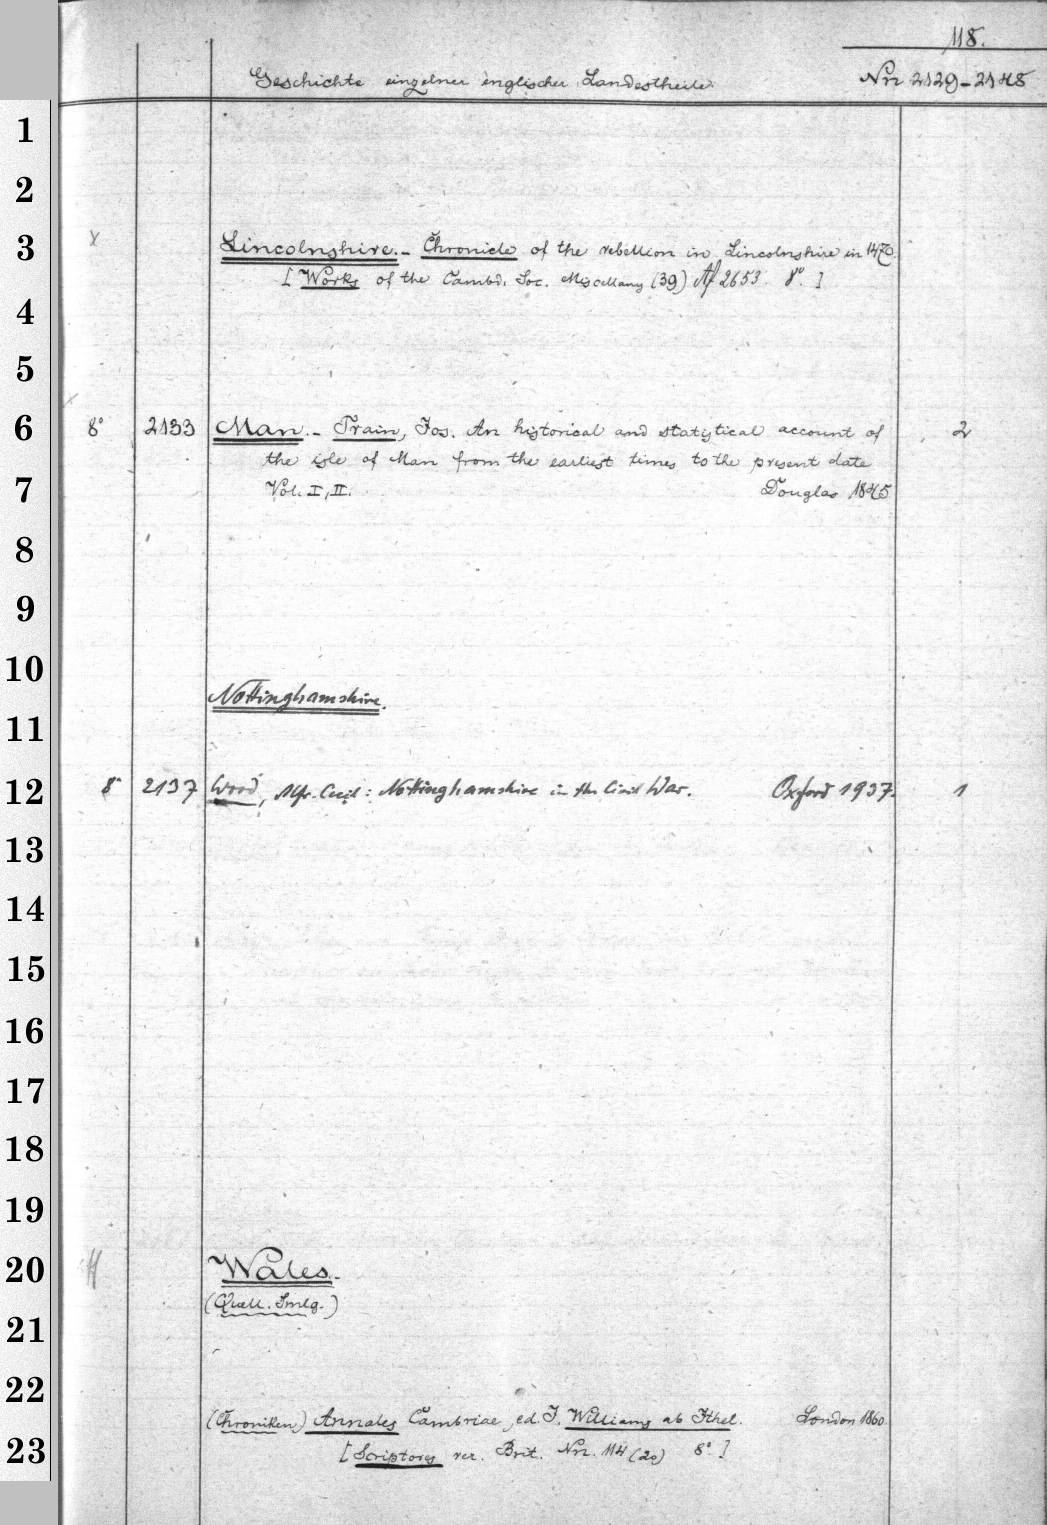 118.
Geschichte einzelner englischer Landestheile. Nrr 2129-2148
1
2
3 x Lincolnshire. - Chronicle of the rebellion in Lincolnshire in 1470.
[Works of the Cambd. Soc. Miscellany (39) Af 2653. 8°.]
4
5
6 8° 2133 Man. - Train, Jos. An historical and statistical account of 2
the isle of Man from the earliest times to the present date
7 Vol. I, II. Douglas 1845
8
9
10
Nottinghamshire.
11
12 8° 2137 Wood, Alfr. Cecil: Nottinghamshire in the Civil War. Oxford 1937. 1
13
14
15
16
17
18
19
20 Wales.
(Quell. Smlg.)
21
22
(Chroniken) Annales Cambriae, ed. J. Williams ab Ithel. London 1860.
23 [Scriptores rer. Brit. Nrr. 114 (20) 8°]